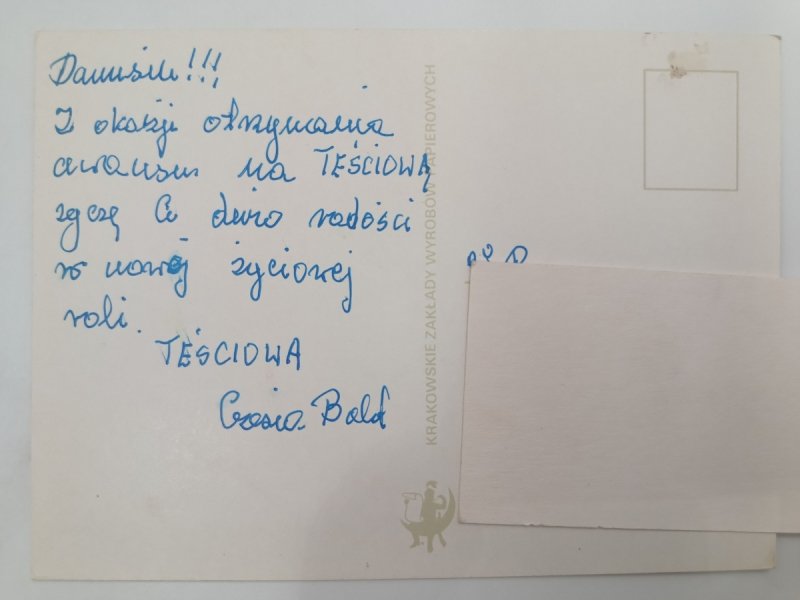 Danusiu!!!
Z okazji otrzymania
awansu na TEŚCIOWĄ
życzę Ci dużo radości
w nowej życiowej
roli.
TEŚCIOWA
Bald
KRAKOWSKIE ZAKŁADY WYROBÓW PAPIEROWYCH